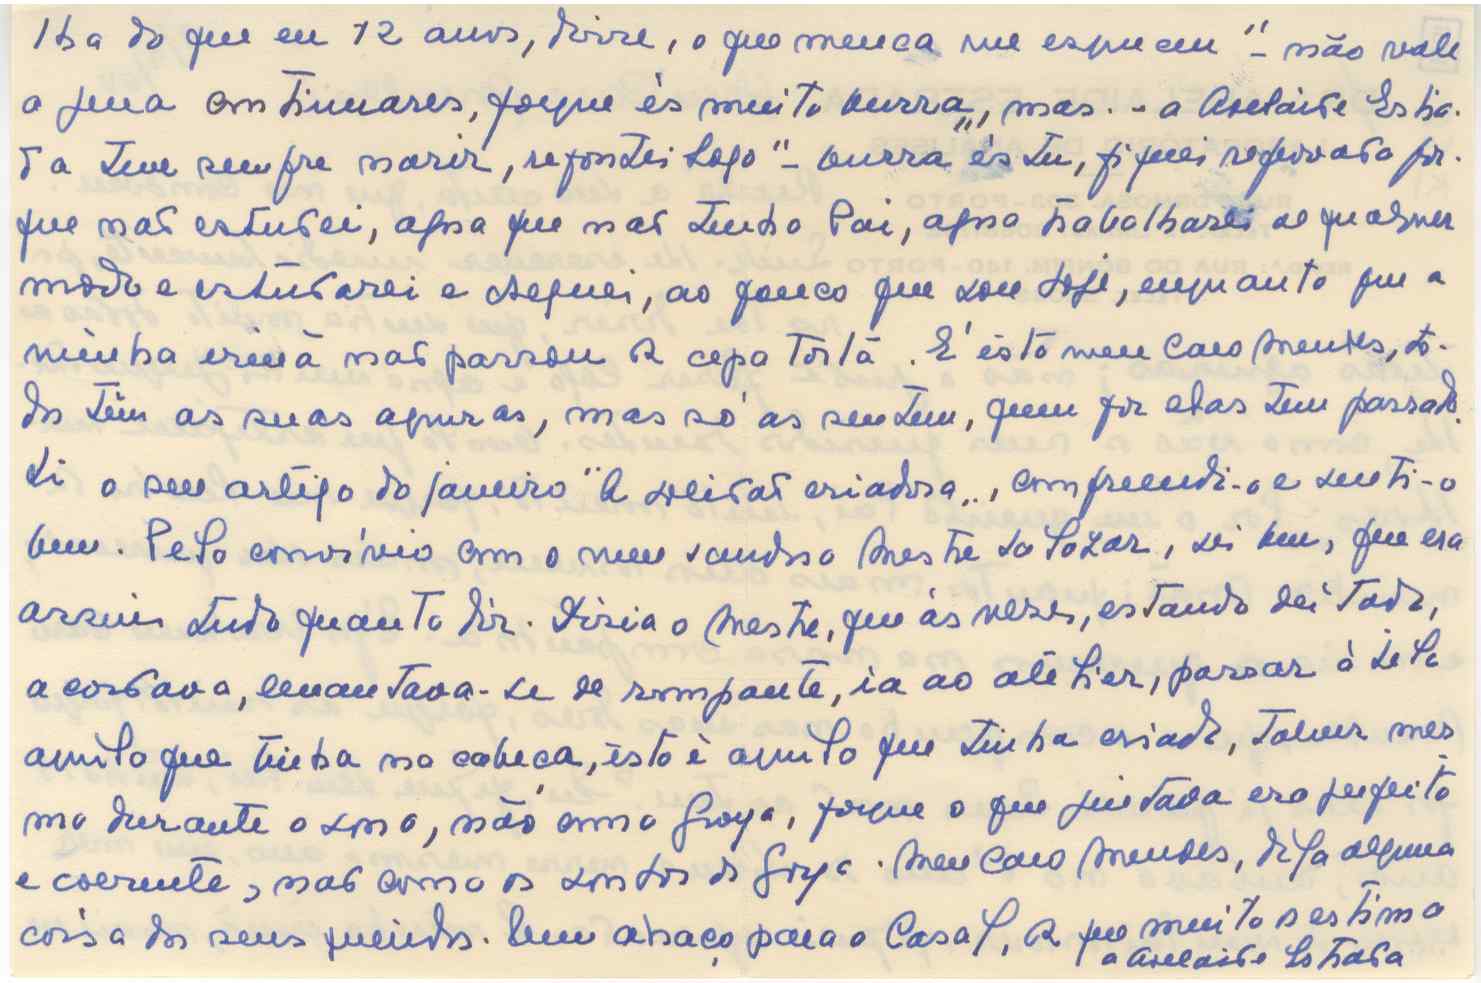 lha do que eu 12 anos, disse, o que nunca me esqueceu "- não vale
a pena continuares, porque és muito burra", mas - a Adelaide Estra-
da teve sempre nariz, respondi logo "- burra és tu, fiquei reprovada por-
que não estudei, agora que não tenho Pai, agora trabalharei de qualquer
modo e estudarei e cheguei, ao pouco que sou hoje, enquanto que a
minha irmã não passou da cepa torta. E' isto meu caro Mendes, to-
dos têm as suas agruras, mas só as sentem, quem por elas tem passado.
Li o seu artigo do janeiro "A solidão criadora", compreendi-o e senti-o
bem. Pelo convívio com o meu saudoso Mestre Salazar, sei bem, que era
assim tudo quanto diz. Dizia o Mestre, que às vezes, estando deitado,
acordava, levantava-se de rompante, ia ao atelier, passar à tela
aquilo que tinha na cabeça, isto é aquilo que tinha criado, talvez mes-
mo durante o sono, não como Goya, porque o que pintava era perfeito
e coerente, não como os sonhos de Goya. Meu caro Mendes, diga alguma
coisa dos seus queridos. Um abraço para o Casal, da que muito os estima
a Adelaide Estrada